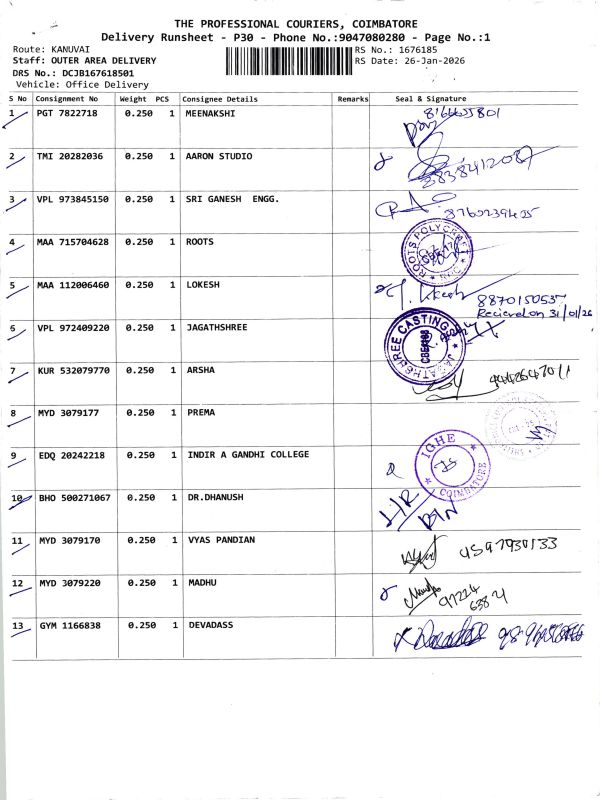 THE PROFESSIONAL COURIERS, COIMBATORE
Delivery Runsheet - P30 - Phone No.:9047080280 - Page No.:1
Route: KANUVAI
RS No.: 1676185
Staff: OUTER AREA DELIVERY
RS Date: 26-Jan-2026
DRS No.: DCJB167618501
Vehicle: Office Delivery
S No Consignment No Weight PCS Consignee Details Remarks Seal & Signature
1 PGT 7822718 0.250 1 MEENAKSHI
2 TMI 20282036 0.250 1 AARON STUDIO
3 VPL 973845150 0.250 1 SRI GANESH ENGG.
4 MAA 715704628 0.250 1 ROOTS
ROOTS POLYCRAFT
5 MAA 112006460 0.250 1 LOKESH
8870150537
Recieved on 31/01/26
6 VPL 972409220 0.250 1 JAGATHSHREE
JAGATHSHREE CASTING
7 KUR 532079770 0.250 1 ARSHA
8 MYD 3079177 0.250 1 PREMA
9 EDQ 20242218 0.250 1 INDIR A GANDHI COLLEGE
IGHE
COIMBATORE
10 BHO 500271067 0.250 1 DR.DHANUSH
11 MYD 3079170 0.250 1 VYAS PANDIAN
12 MYD 3079220 0.250 1 MADHU
13 GYM 1166838 0.250 1 DEVADASS